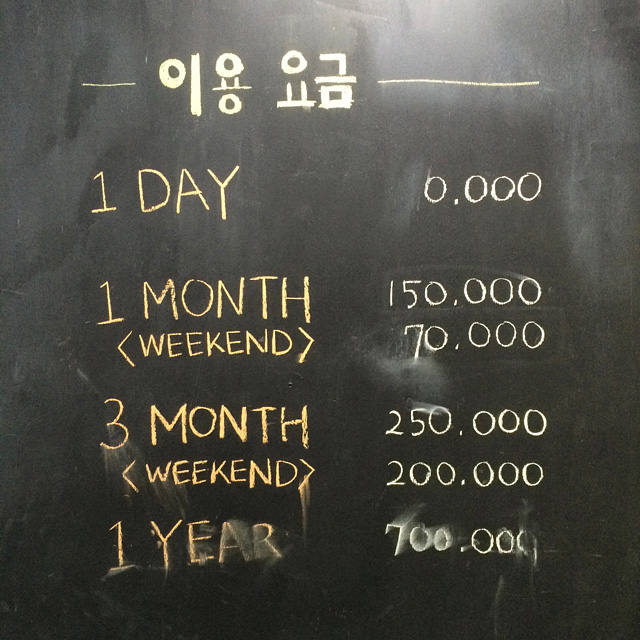 이용 요금
1 DAY 0.000
1 MONTH 150.000
<WEEKEND> 70.000
3 MONTH 250.000
<WEEKEND> 200.000
1 YEAR 700.000